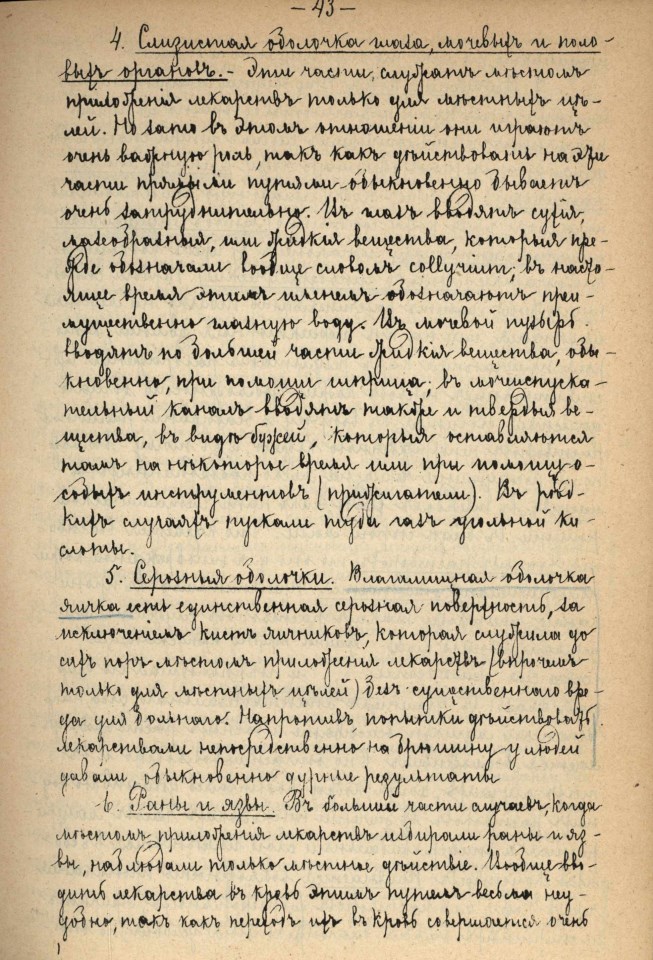 — 43 —
4. Слизистая оболочка глаза, мочевыхъ и поло-
выхъ органовъ. – Эти части, служатъ мѣстомъ
приложенія лекарствъ только для мѣстныхъ цѣ-
лей. Но зато въ этомъ отношеніи они играютъ
очень важную роль, такъ какъ дѣйствовать на эти
части прямыми путями обыкновенно бываетъ
очень затруднительно. Въ глазъ вводятъ сухія,
мазеобразныя, или жидкія вещества, которыя пре-
жде обозначали вообще словомъ collyrium; въ насто-
ящее время этимъ именемъ обозначаютъ преи-
мущественно глазную воду. Въ мочевой пузырь
вводятъ по большей части жидкія вещества, обы-
кновенно, при помощи шприца; въ мочеиспуска-
тельный каналъ вводятъ также и твердыя ве-
щества, въ видѣ бужей, которыя оставляются
тамъ на нѣкоторое время или при помощи о-
собыхъ инструментовъ (прижигатели). Въ рѣд-
кихъ случаяхъ пускали туда газъ угольной ки-
слоты.
5. Серозныя оболочки. Влагалищная оболочка
яичка есть единственная серозная поверхность, за
исключеніемъ кистъ яичниковъ, которая служила до
сихъ поръ мѣстомъ приложенія лекарствъ (впрочемъ
только для мѣстныхъ цѣлей) безъ существеннаго вре-
да для больнаго. Напротивъ попытки дѣйствовать
лекарствами непосредственно на брюшину у людей
давали, обыкновенно дурные результаты
6. Раны и язвы. Въ большей части случаевъ, когда
мѣстомъ приложенія лекарствъ избирали раны и яз-
вы, наблюдали только мѣстное дѣйствіе. Вообще вво-
дить лекарства въ кровь этимъ путемъ весьма неу-
добно, такъ какъ переходъ ихъ въ кровь совершается очень